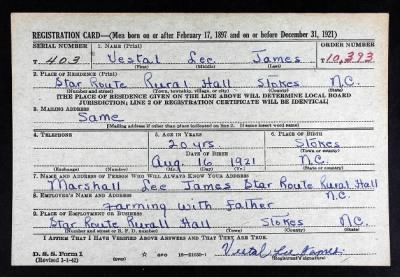 REGISTRATION CARD—(Men born on or after February 17, 1897 and on or before December 31, 1921)
SERIAL NUMBER 1. NAME (Print) ORDER NUMBER
T 403 Vestal Lee James T10,393
(First) (Middle) (Last)
2. PLACE OF RESIDENCE (Print)
Star Route Rural Hall Stokes N.C.
(Number and street) (Town, township, village, or city) (County) (State)
[THE PLACE OF RESIDENCE GIVEN ON THE LINE ABOVE WILL DETERMINE LOCAL BOARD
JURISDICTION; LINE 2 OF REGISTRATION CERTIFICATE WILL BE IDENTICAL]
3. MAILING ADDRESS
Same
[Mailing address if other than place indicated on line 2. If same insert word same]
4. TELEPHONE 5. AGE IN YEARS 6. PLACE OF BIRTH
20 yrs. Stokes
DATE OF BIRTH (Town or county)
Aug. 16 1921 N.C.
(Exchange) (Number) (Mo.) (Day) (Yr.) (State or country)
7. NAME AND ADDRESS OF PERSON WHO WILL ALWAYS KNOW YOUR ADDRESS
Marshall Lee James Star Route Rural Hall
8. EMPLOYER'S NAME AND ADDRESS N.C.
Farming with Father
9. PLACE OF EMPLOYMENT OR BUSINESS
Star Route Rural Hall Stokes N.C.
(Number and street or R. F. D. number) (Town) (County) (State)
I AFFIRM THAT I HAVE VERIFIED ABOVE ANSWERS AND THAT THEY ARE TRUE.
D. S. S. Form 1 Vestal Lee James
(Revised 1-1-42) (over) (Registrant's signature)